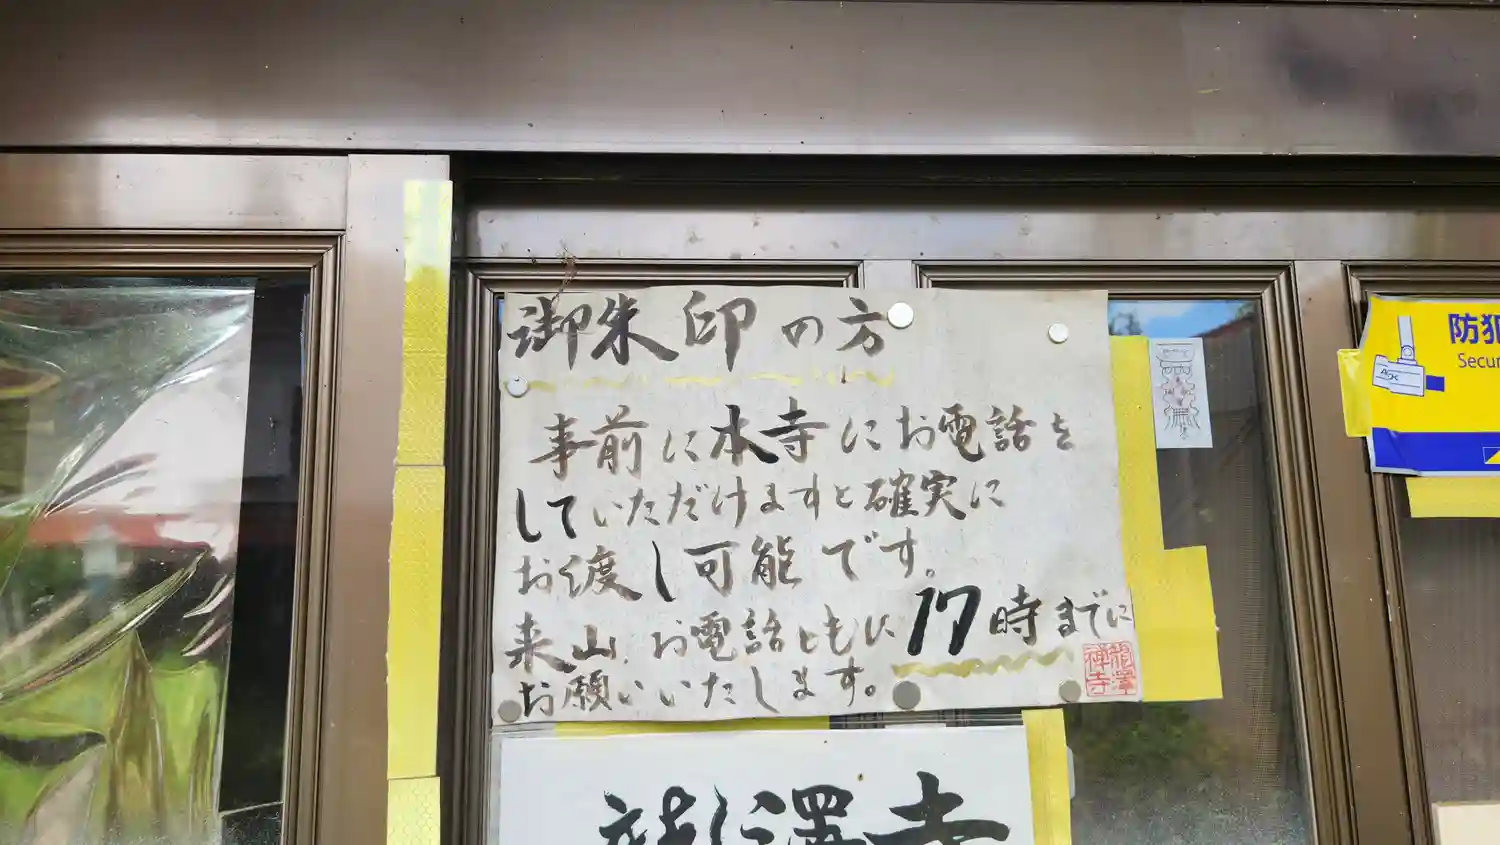 御朱印の方
事前に本寺にお電話を
していただけますと確実に
お渡し可能です。
来山、お電話ともに17時までに
お願いいたします。
龍澤
禅寺
龍澤寺
防犯
Secur